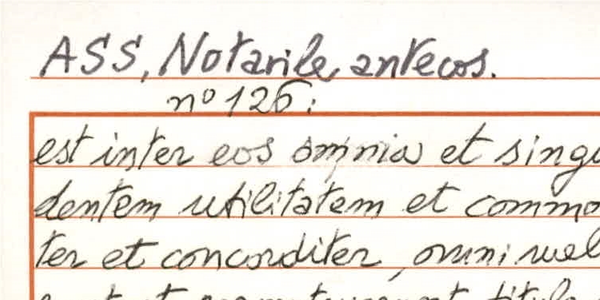 ASS, Notarile antecos.
nº 126:
est inter eos omnia et singu
dentem utilitatem et commo
ter et concorditer, omni mel